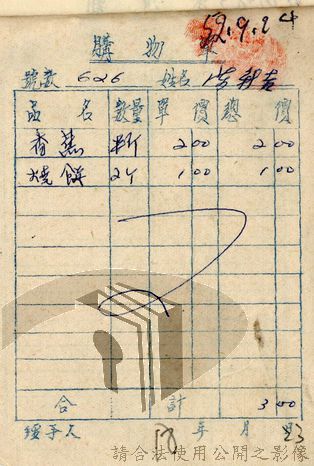 52.9.24
購物單
號數 626 姓名
品名 數量 單價 總價
香蕉 1斤 2 00 2 00
燒餅 2个 1 00 1 00
合計 3 00
經手人 年 月 日
請合法使用公開之影像